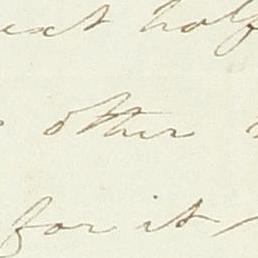 next half
other
for it